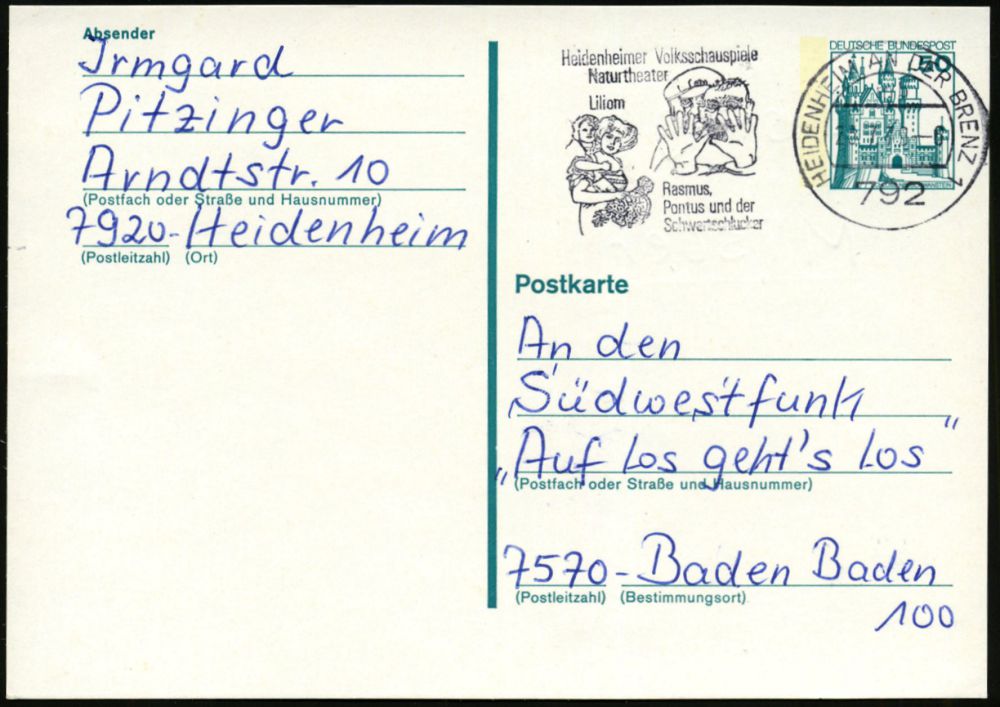 Absender
Irmgard
Pitzinger
Arndtstr. 10
(Postfach oder Straße und Hausnummer)
7920-Heidenheim
(Postleitzahl) (Ort)
Heidenheimer Volksschauspiele
Naturtheater
Liliom
Rasmus,
Pontus und der
Schwertschlucker
DEUTSCHE BUNDESPOST
50
HEIDENHEIM AN DER BRENZ 1
792
Postkarte
An den
Südwestfunk
„Auf Los geht's los"
(Postfach oder Straße und Hausnummer)
7570-Baden Baden
(Postleitzahl) (Bestimmungsort)
100